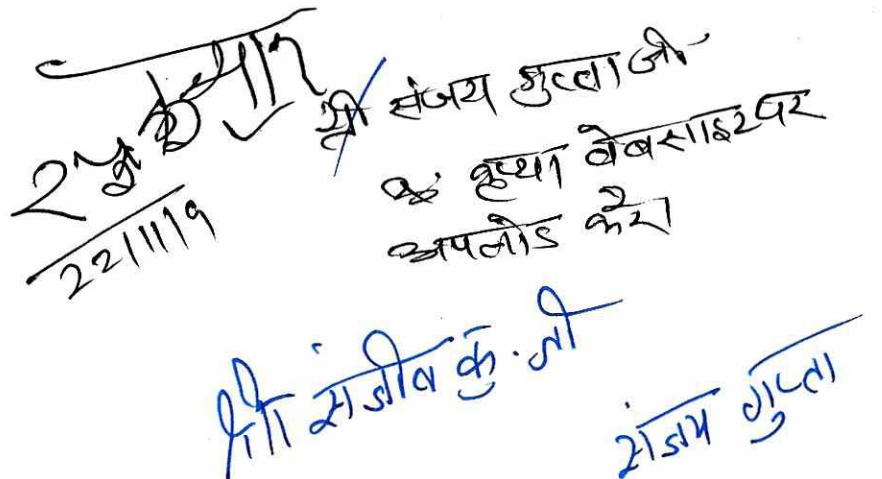 22/11/19
श्री संजय गुप्ता जी
कृप्या वेबसाइट पर
अपलोड करें।
श्री संजीव कु. जी
संजय गुप्ता